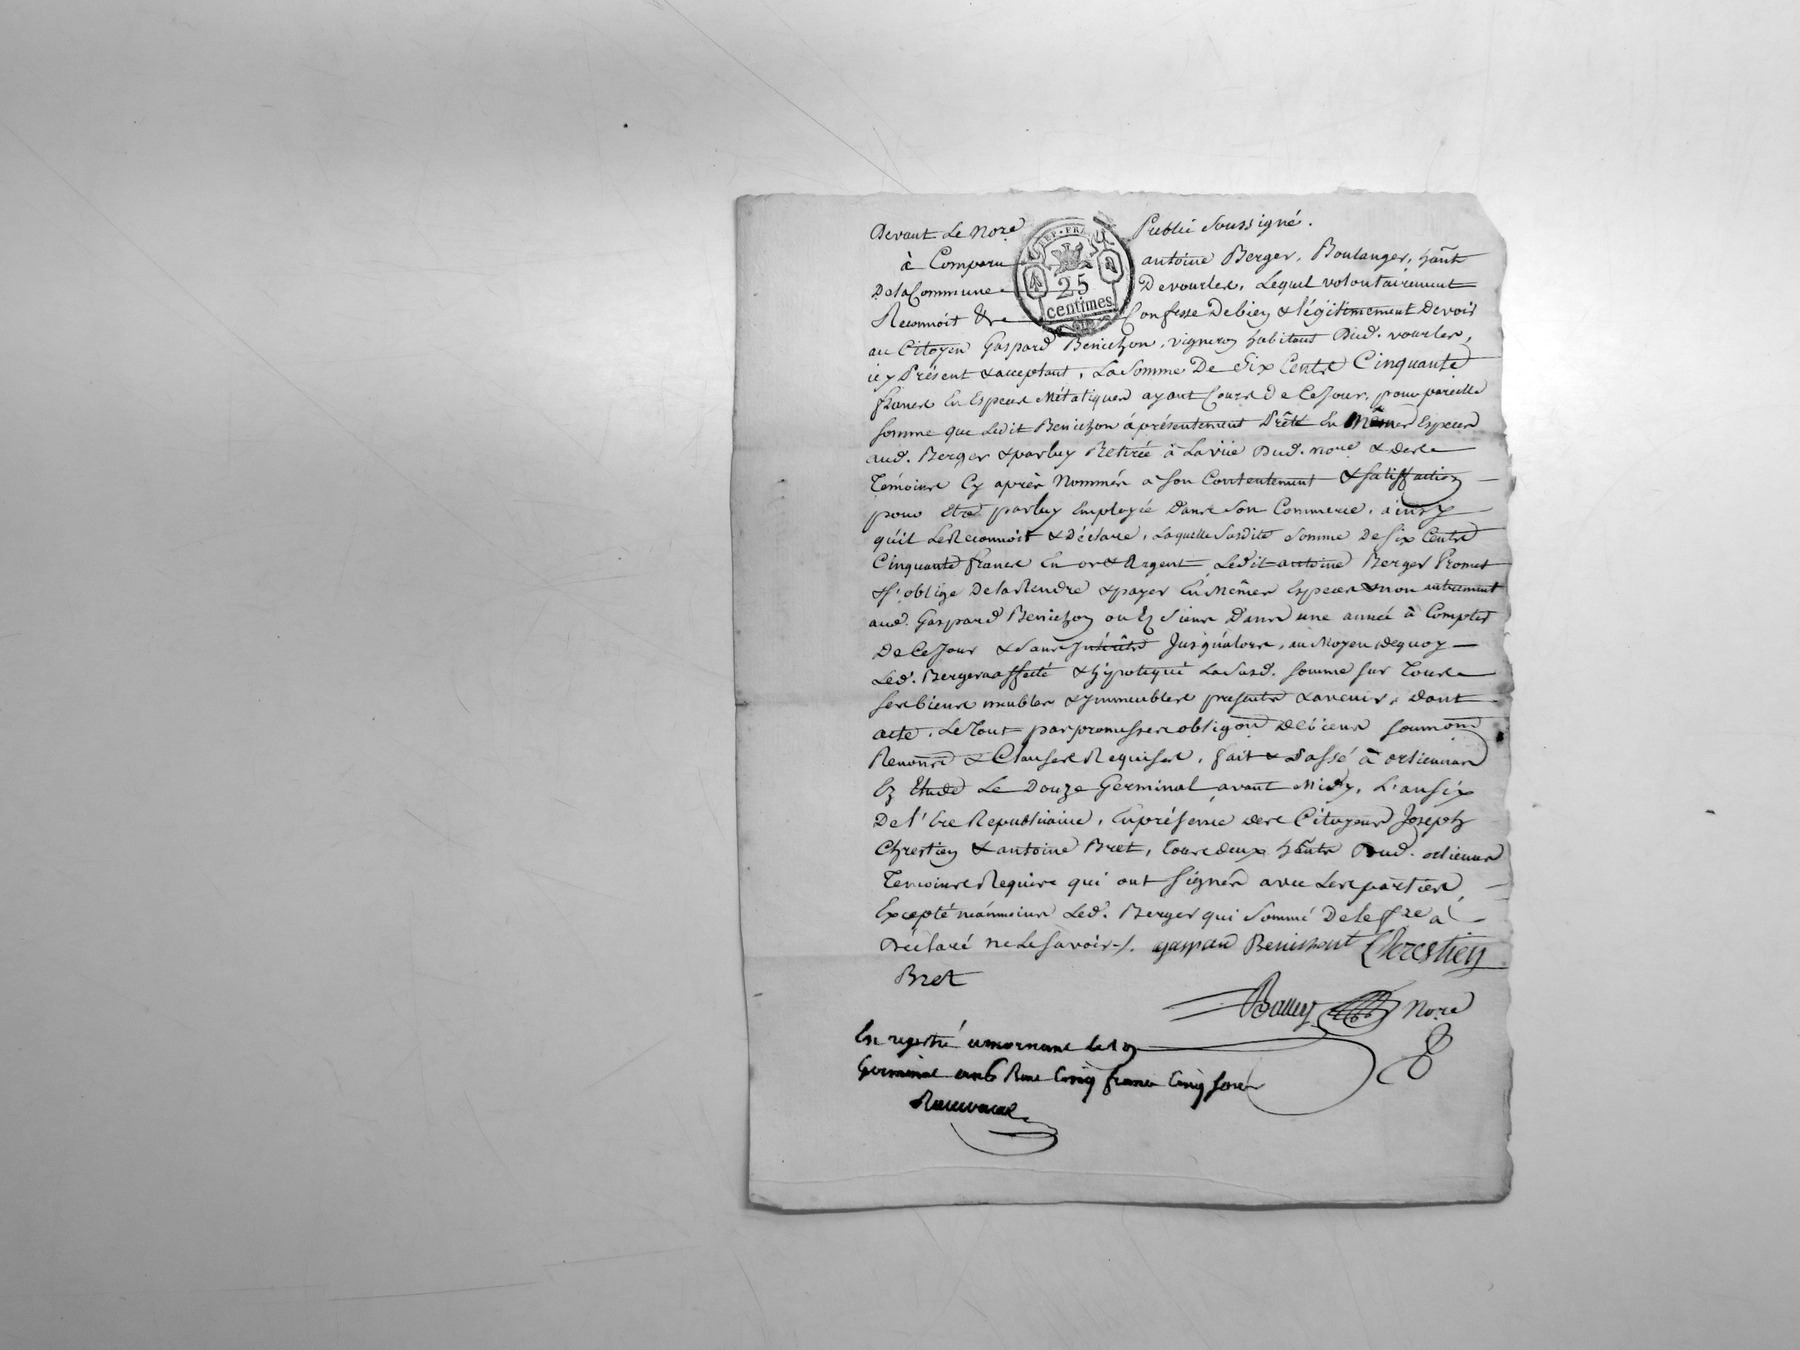 Devant Le No.re Public Soussigné.
REP. FRA
25
centimes
à Comparu antoine Berger, Boulanger, hañt
De la Commune De vourles, Lequel volontairement
Reconnoit & Confesse De bien & légitimement Devoir
au Citoyen Gaspard Benichon, vigneron habitant Dud. vourles,
icy Présent & acceptant, La Somme De Six Cents Cinquante
francs En Especes Métaliques ayant Cours De Ce Jour, pour pareille
Somme que Ledit Benichon à présentement Prêté En Mêmes Especes
aud. Berger & par luy Retirée à La vüe Dud. no.re & des
Témoins Cy après Nommés a Son Contentement & satisfaction
pour Etre par luy Employée Dans Son Commerce, ainsy
qu'il Le Reconnoit & Déclare, Laquelle Susdite Somme De Six Cents
Cinquante francs En or & Argent, Ledit antoine Berger Promet
& s'oblige De la Rendre & payer En Mêmes Especes & non autrement
aud. Gaspard Benichon ou Es Siens Dans une année à Compter
De Ce Jour & Sans Intérêts Jusqu'alors, au Moyen de quoy
Led. Berger a affecté & hÿpotequé La Susd. Somme Sur Tous
Ses biens meubles & ymmeubles presents & avenir, Dont
acte. Le Tout par promesses obligõn De biens Soumõns
Renonñs & Clauses Requises, fait & Passé à orlienas
En Etude Le Douze Germinal avant Midy, L'an Six
De l'Ere Republicaine, En présence des Citoyens Joseph
Chrestien & antoine Bret, Tous deux hãnts Dud. orlienas
Temoins Requis qui ont Signés avec Les parties,
Excepté néanmoins Led. Berger qui Sommé De le f.re a
Déclaré ne Le Savoir ./. gaspard Benisson Chrestien
Bret
No.re
Enregistré a mornant le
Germinal an 6 Reçu Cinq francs Cinq sous